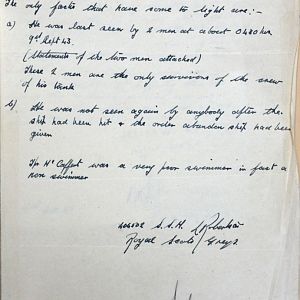 The only facts that have come to light are:-
a) He was last seen by 2 men at about 0430 hrs
9th Sept 43.
(Statements of the two men attached)
These 2 men are the only survivors of the crew
of his tank
b) He was not seen again by anybody after the
ship had been hit & the order abandon ship had been
given
Tpr Mc Caffert was a very poor swimmer in fact a
non swimmer
S.S.M. Robertson
Royal Scots Greys